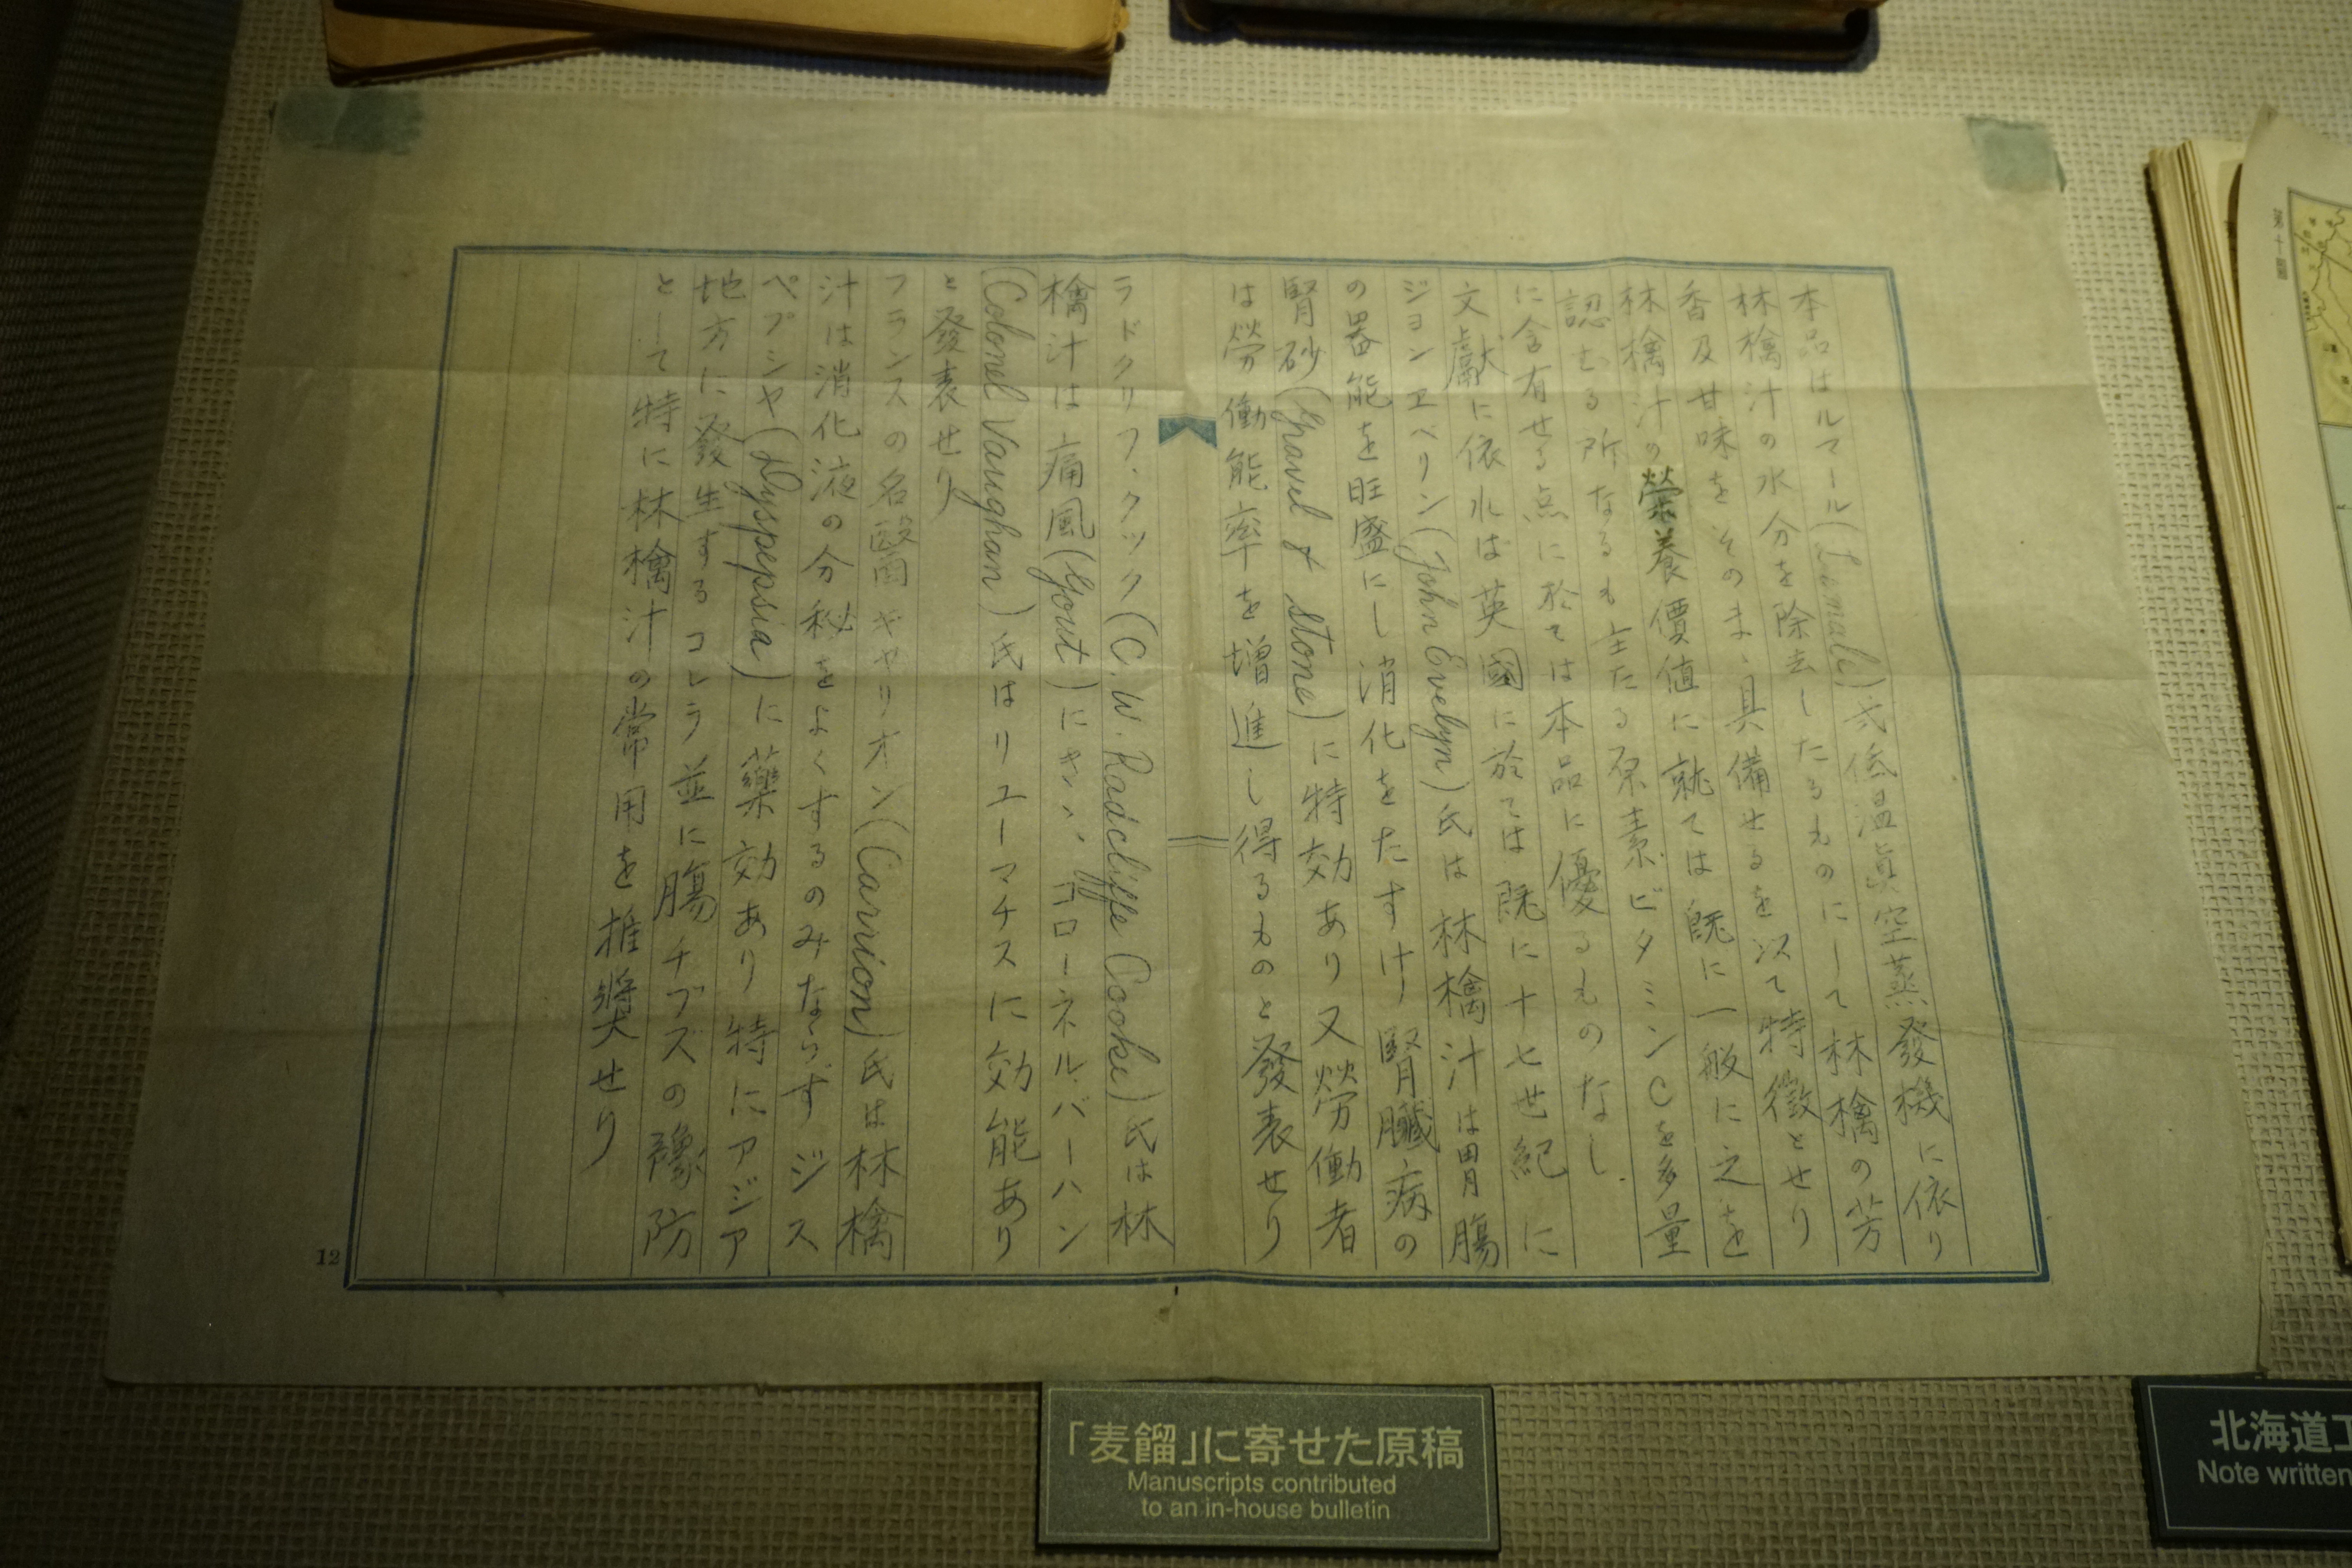 本品はルマール(Lemale)式低温眞空蒸發機に依り
林檎汁の水分を除去したるものにして林檎の芳
香及甘味をそのまゝ具備せるを以て特徴とせり
林檎汁の榮養價値に就ては既に一般に之を
認むる所なるも主たる原素ビタミンCを多量
に含有せる点に於ては本品に優るものなし
文獻に依れば英國に於ては既に十七世紀に
ジョンエベリン(John Evelyn)氏は林檎汁は胃腸
の器能を旺盛にし消化をたすけ腎臓病の
腎砂(Gravel & Stone)に特効あり又労働者
は勞働能率を増進し得るものと發表せり
ラドクリフ・クック(C.W. Radcliffe Cooke)氏は林
檎汁は痛風(Gout)にきゝコローネル.バーハン
(Colonel Vaughan)氏はリユーマチスに効能あり
と發表せり
フランスの名醫キャリオン(Carrion)氏は林檎
汁は消化液の分秘をよくするのみならずジス
ペプシヤ(Dyspepsia)に藥効あり特にアジア
地方に發生するコレラ並に腸チブスの豫防
として特に林檎汁の常用を推奬せり
12
「麦餾」に寄せた原稿
Manuscripts contributed
to an in-house bulletin
北海道
Note written